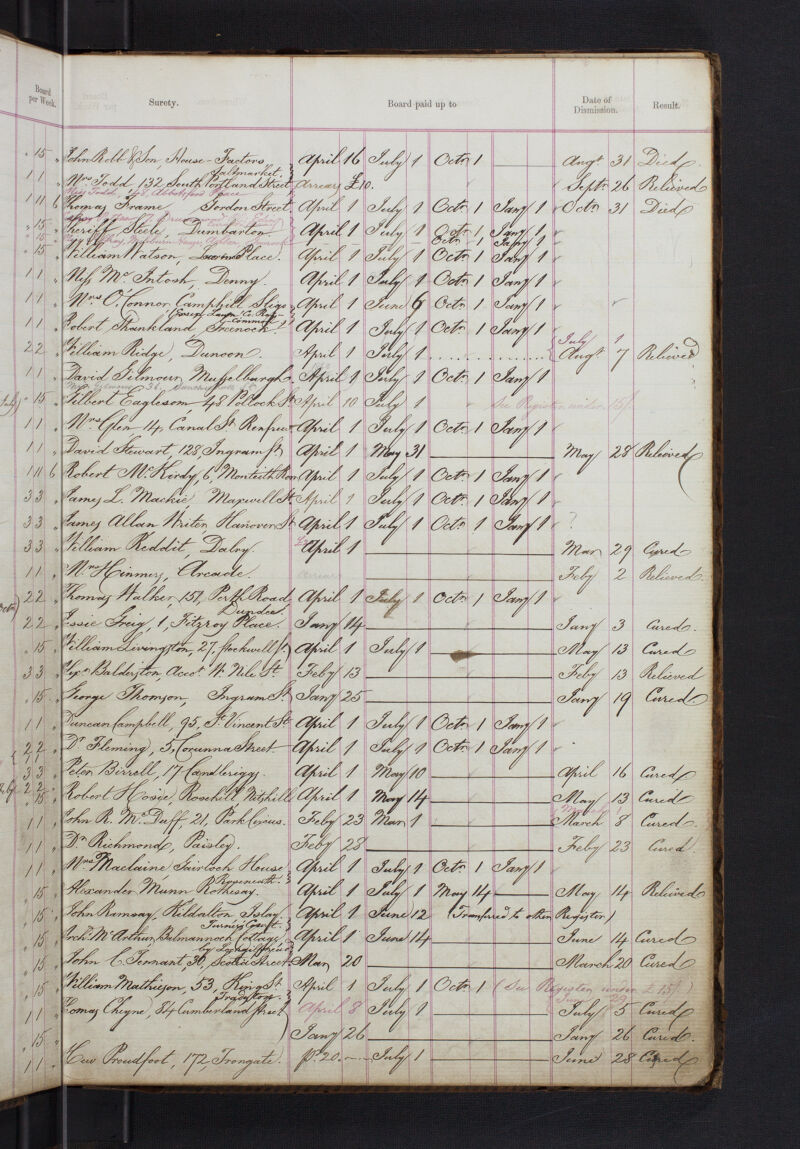 Board per Week. Surety. Board paid up to Date of Dismission. Result.
15 John Robb & Son House-Factors April 16 July 1 Octr 1 Augt 31 Died
Saltmarket
11 Mrs Todd 132 South Portland Street Arrears £10. Septr 26 Relieved
11 6 Thomas Frame Gordon Street April 1 July 1 Octr 1 Jany 1 Octr 31 Died
15 Sheriff Steele, Dumbarton April 1 July 1 Octr 1 Jany 1
Octr 1 Jany 1
15 William Watson, Place. April 1 July 1 Octr 1 Jany 1
11 Miss Mc Intosh, Denny April 1 July 1 Octr 1 Jany 1
11 Mrs O'Connor Campbell Sligo April 1 June 6 Octr 1 Jany 1
11 Robert Shankland Greenock April 1 July 1 Octr 1 Jany 1
July 1
22 William Ridge, Dunoon. April 1 July 1 Augt 7 Relieved
11 David Gilmour, Musselburgh April 1 July 1 Octr 1 Jany 1
15 Gilbert Eaglesom 48 Pollock St April 10 July 1 See Register under 15/
11 Mrs Glen 14 Canal St. Renfrew April 1 July 1 Octr 1 Jany 1
11 David Stewart, 128 Ingram St April 1 May 31 May 28 Relieved
11 6 Robert McKirdy, 6, Monteith Row April 1 July 1 Octr 1 Jany 1
33 James L. Mackie Maxwell St April 1 July 1 Octr 1 Jany 1
33 James Allan Writer Hanover St April 1 July 1 Octr 1 Jany 1 ?
33 William Reddit, Dalry. April 1 Mar 29 Cured
11 Mrs Hinmers, Arcade. Arrears Feby 2 Relieved
22 Thomas Walker, 151, Perth Road April 1 July 1 Octr 1 Jany 1
Dundee
22 Jessie Greig, 1, Fitzroy Place. Jany 14 Jany 3 Cured
15 William Livingston, 27, Stockwell St April 1 July 1 May 13 Cured
33 Balderston, Acct. W. Nile St. Feby 13 Feby 13 Relieved
15 George Thomson, Ingram St Jany 25 Jany 19 Cured
11 Duncan Campbell, 95, St. Vincent St April 1 July 1 Octr 1 Jany 1
22 Dr Fleming, 3, Corunna Street April 1 July 1 Octr 1 Jany 1
33 Peter Birrell, 17 Candleriggs. April 1 May 10 April 16 Cured
22 15 Robert Hosie, Rosehill Nitshill April 1 May 14 May 13 Cured
11 John R. McDuff, 21, Park Feby 23 Mar 1 March 8 Cured
11 Dr Richmond, Paisley. Feby 28 Feby 23 Cured
11 Mrs Maclaine Fairloch House April 1 July 1 Octr 1 Jany 1
Roseneath.
15 Alexander Munn Rothesay. April 1 July 1 May 14 May 14 Relieved
15 John Ramsay, Kildalton Islay. April 1 June 12 (Transferred to other Register)
Turners Court
15 Archd McArthur, Belmannoch Cottage, April 1 June 14 June 14 Cured
15 John C Tennant, 30, Scotia Street Mar 20 March 20 Cured
15 William Mathieson, 53, King St. April 1 July 1 Octr 1 (See Register under £15/.)
Tradeston.
11 Thomas Cheyne, 84 Cumberland Street April 8 July 1 July 5 Cured
15 Jany 26 Jany 26 Cured
11 Hew Proudfoot, 172, Trongate. pd. 20. July 1 June 28 Cured